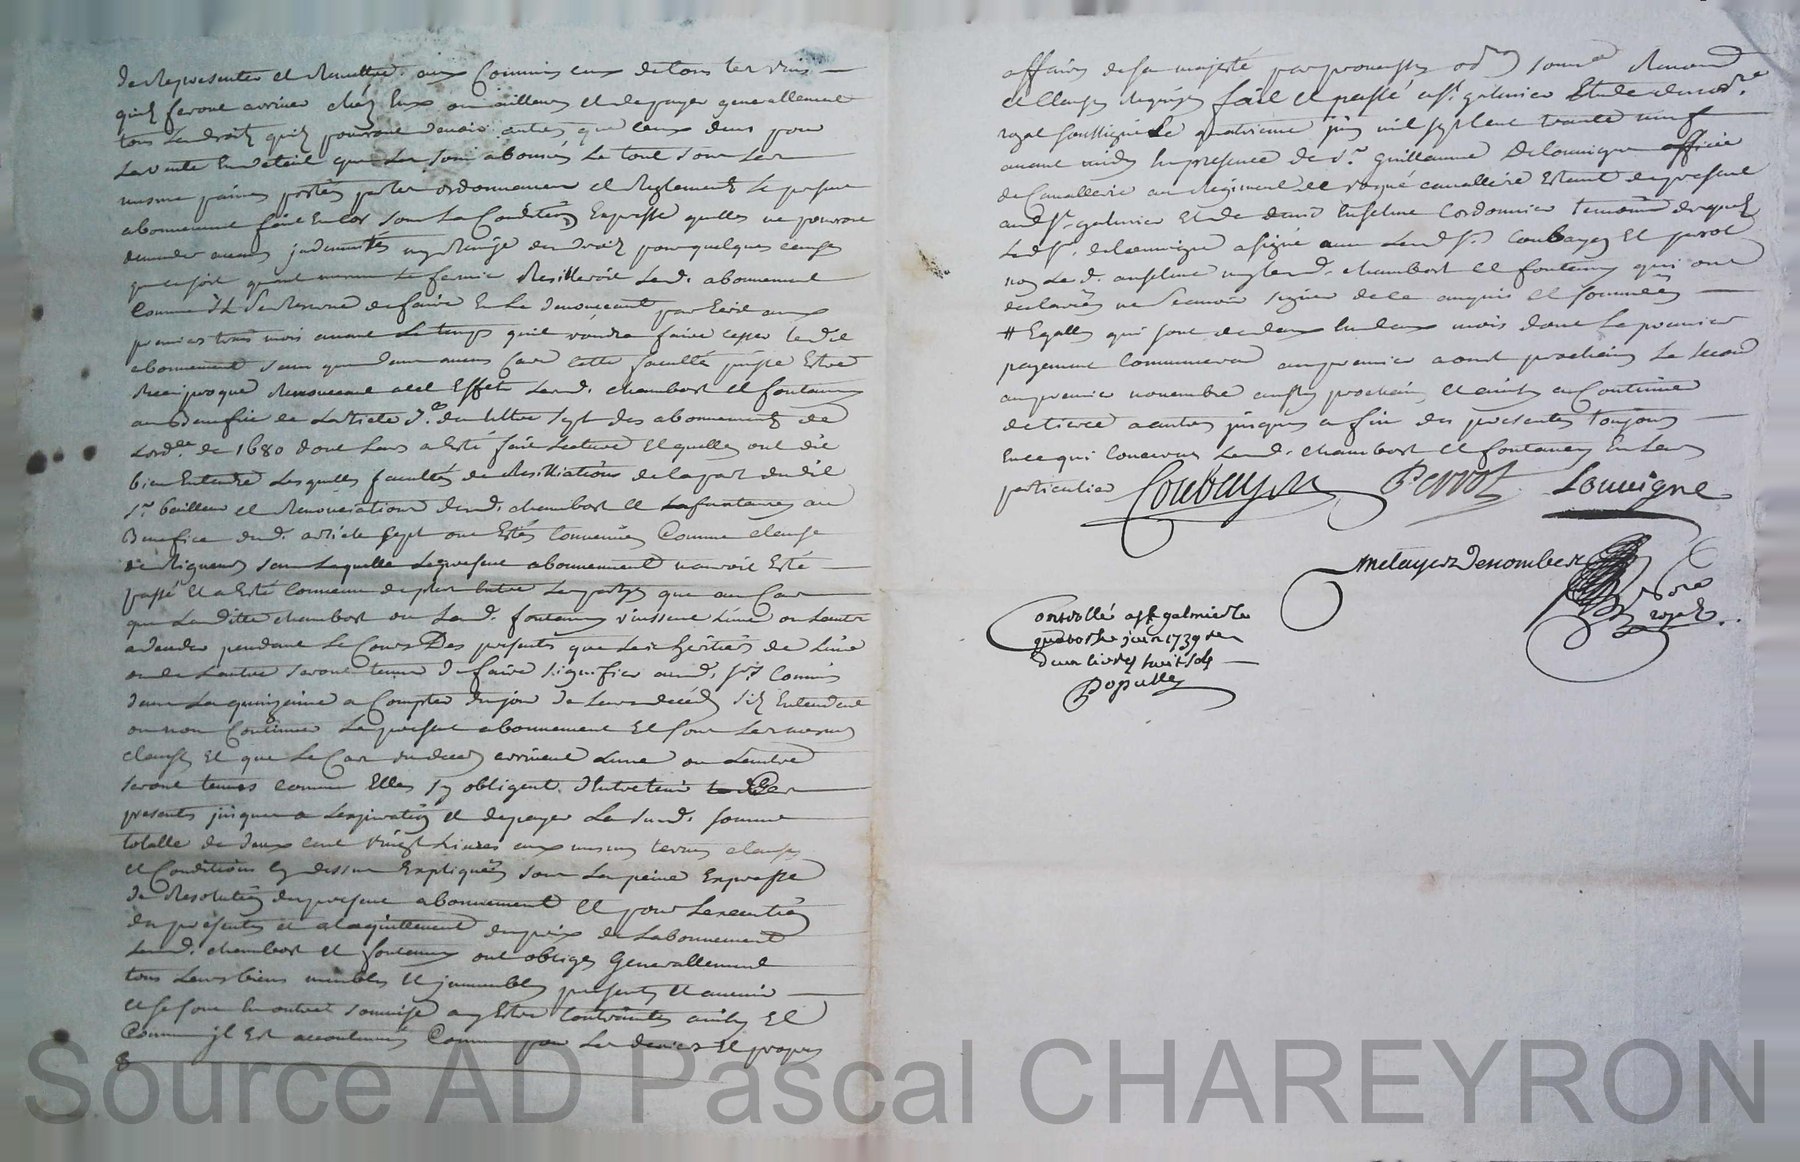 de Representer et Remettre aux Commis ceux de tous les vins
quils feront arriver chez Eux ou ailleurs et de payer generallement
tous les droits quils pourront devoir autres que ceux deus pour
La vente En detail que Le tout sous Les
mesme paines portées par les ordonnances et Reglements Le present
abonnement fait Encor sous La Condition Expresse quelles ne pouront
demander aucune indamnités ny Remise des droits pour quelques causes
que ce soit quant mesme Le fermier Resilieroit Led. abonnement
Comme Il se Reserve de faire En Le denoncant par Ecrit aux
premiers trois mois avant Le temps quil voudra faire cesser Ledit
abonnement sans que dans aucun Cas cette faculté puisse Estre
Reciproque Renoncant acet Effet Lesd. chambost et fontaney
au Benefice de Larticle 7.e du tittre sept des abonnements de
Lord.ce de 1680 dont Leur a esté fait Lecture et quelles ont dit
bien Entendre Lesquelles facultés de Resilliation de la part dudit
S.r bailleur et Renonciation desd. chambost et fontaney au
Benefice dud. article sept ont Estés Convenues Comme clause
de Rigueur sans Laquelle Le present abonnement nauroit Esté
passé Et a Esté Convenu de plus Entre Les parties que au Cas
que Lesdittes chambost ou Lesd. fontaney vinssent Lune ou Lautre
a deceder pendant Le Cours Des presentes que Les heritiers de Lune
ou de Lautre seront tenus de faire signifier aud. S.r Commis
dans La quinzaine a Compter du jour de Leurs deceds sils Entendent
ou non Continuer Le present abonnement Et sous Les mesmes
clauses Et que Le Cas du deceds arrivant Lune ou Lautre
seront tenues comme Elles sy obligent dEntretenir Les
presentes jusques a Lexpiration et de payer La susd. somme
totalle de deux cent vingt Livres aux mesmes termes clauses
et Conditions cy dessus Expliquées sous La peine Expresse
de Resolution du present abonnement Et pour Lexecution
des presentes et acquittement du prix de Labonnement
Lesd. chambost et fontaney ont obligé Generallement
tous Leurs biens meubles et jmmeubles presents et avenir
et se sont En outre soumises a y Estre Contraintes ainsy Et
Comme jl Est accoutumé Comme pour Les deniers Et propres
affaires de sa majesté par promesses soum.on Renon.on
et Clauses Requises fait et passé a S.t galmier Etude du no.re
royal soussigné Le quatrieme juin mil sept cent trente neuf
avant midy En presence de S.r guillaume Delouvigne officier
de Cavallerie au Regiment de cavallerie Estant de present
aud. S.t galmier Et de Enselme Cordonnier temoins desquels
Led. S.r delouvigne a signé avec Lesd. S.rs Coubayon Et perrot
non Led. anselme ny lesd. chambost et fontaney qui ont
declarés ne Scavoir signer de ce enquis et sommées
# Egalles qui sont de deux En deux mois dont Le premier
payement Commencera au premier aoust prochain Le second
au premier novembre aussy prochain et ainsy a Continuer
de terme a autre jusques a fin des presentes toujours
En ce qui Concerne Lesd. chambost et fontaney En Leur
particulier
Coubayon Perrot Louvigne
Metayer Descombes
No.re
royal
Controllé a S.t galmier le
quatorze juin 1739 Reçu
deux livres huit sols